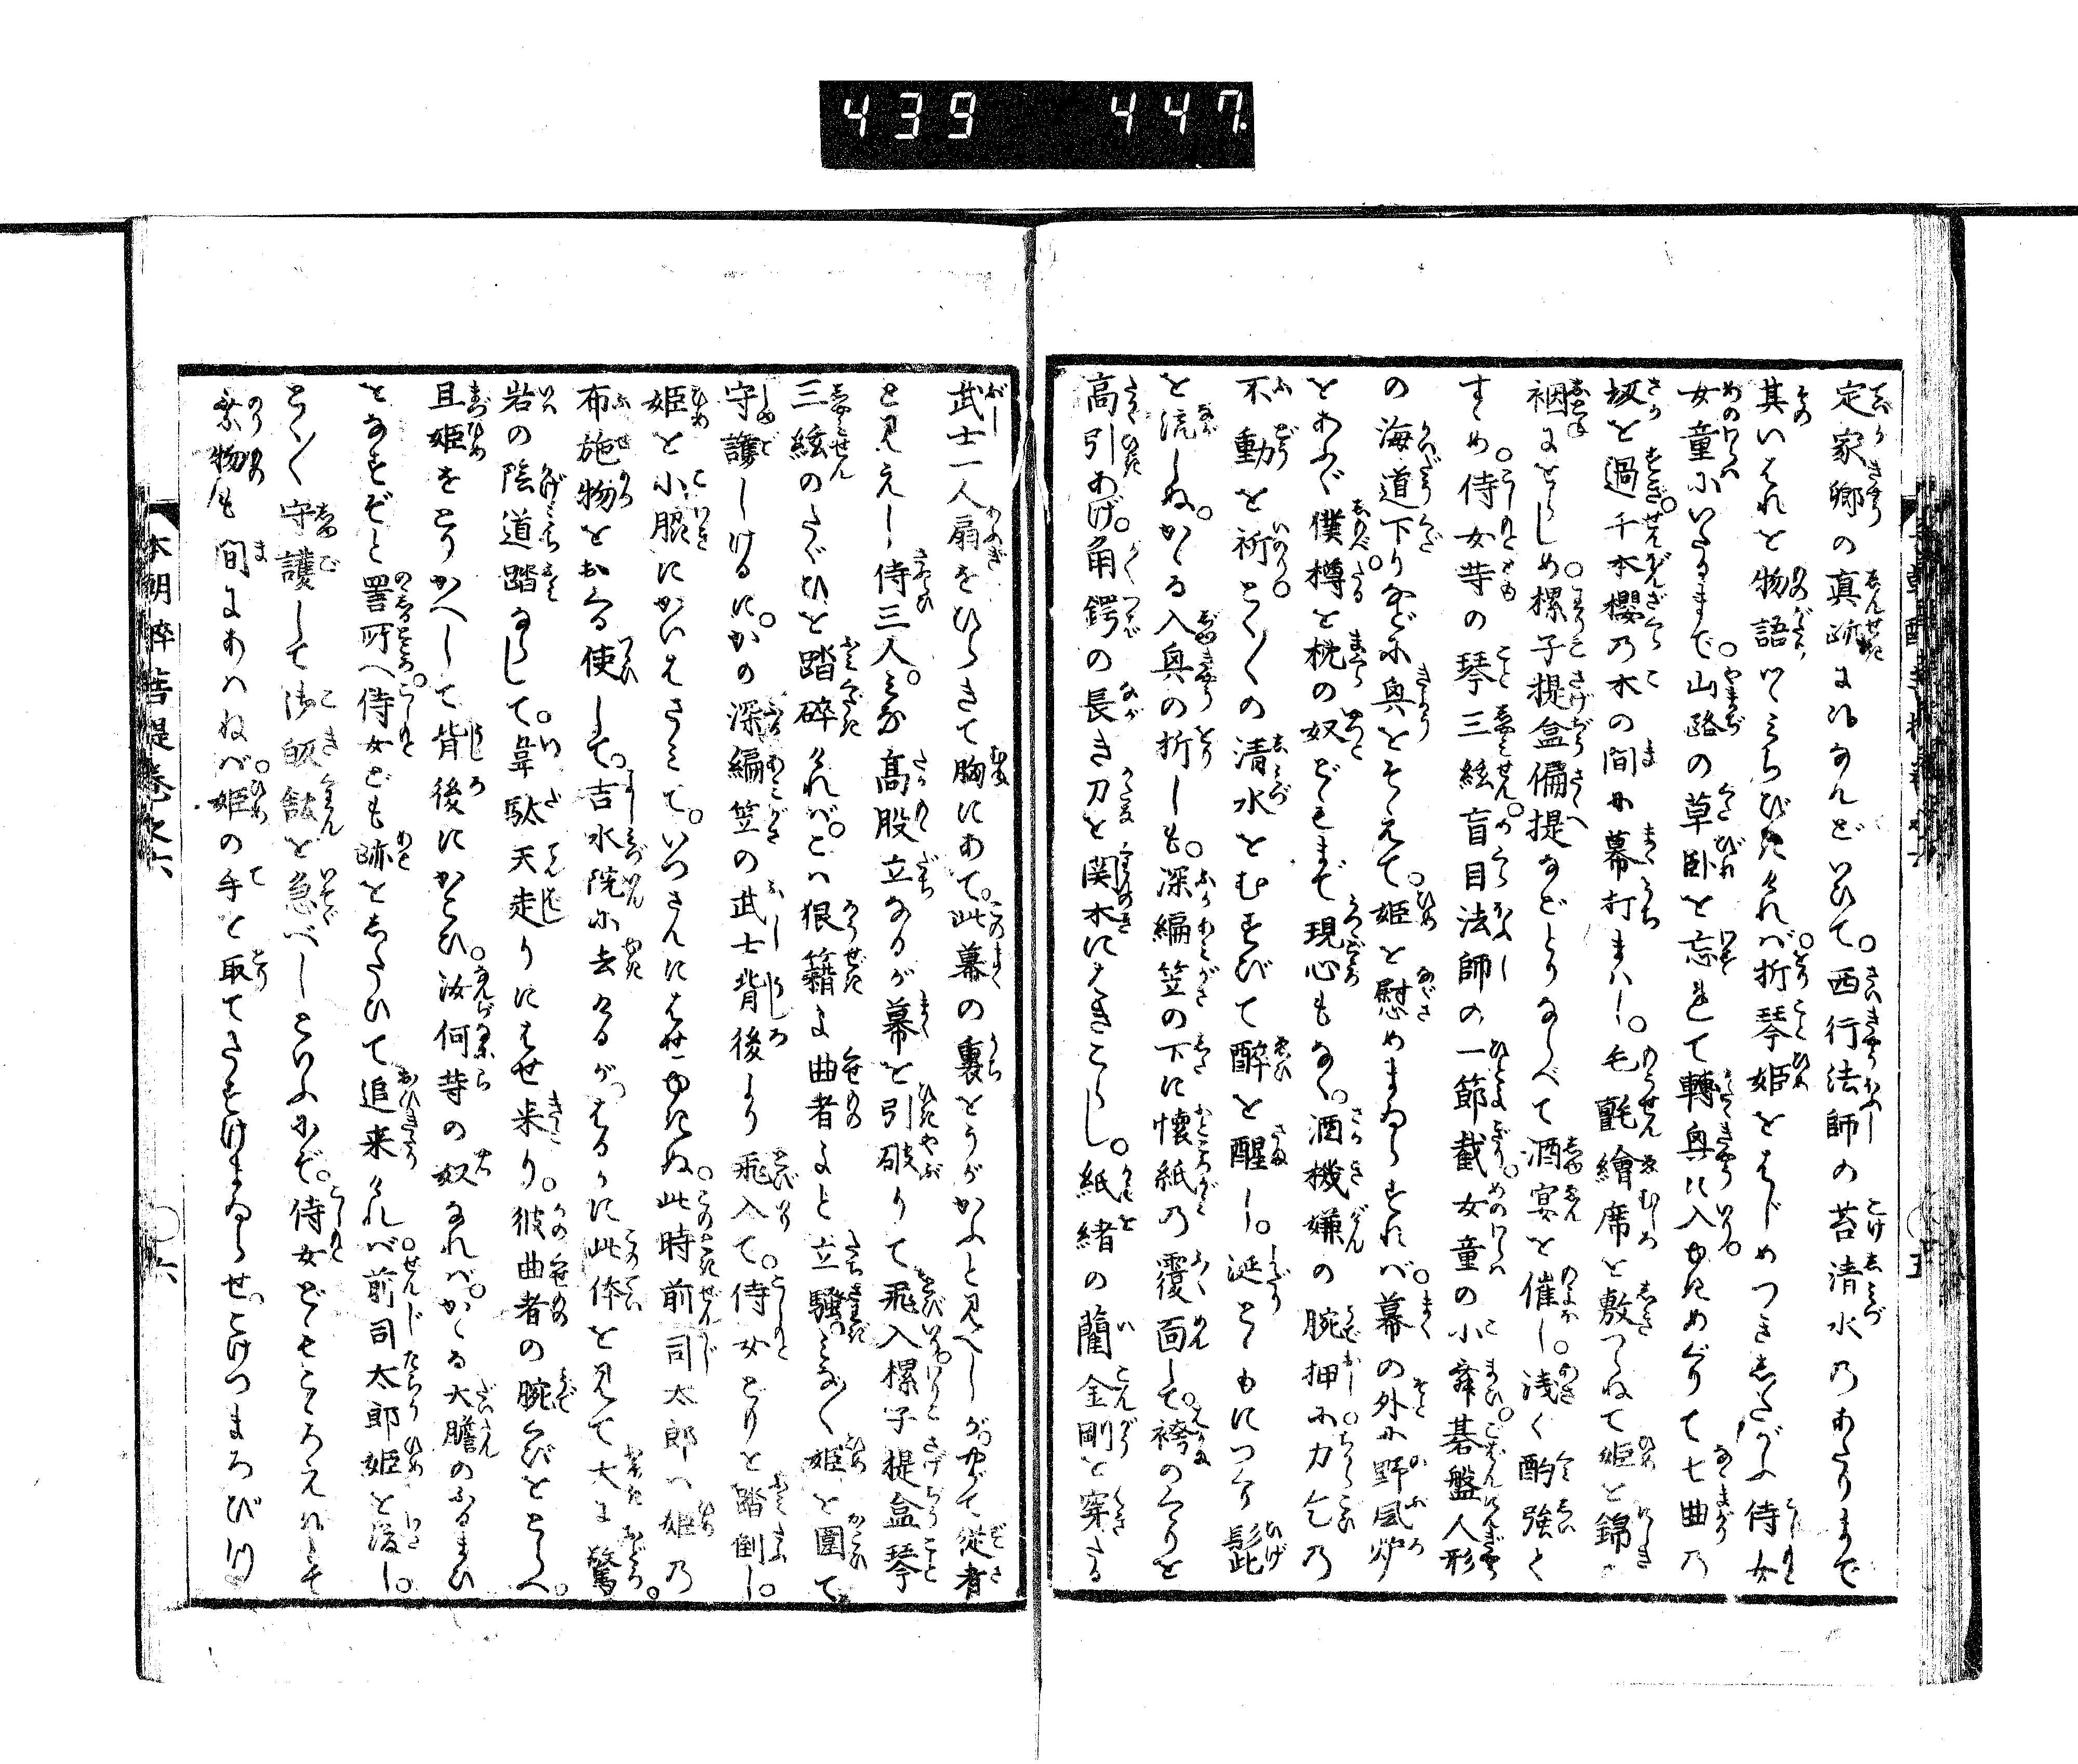 439 447.
定家卿の真跡まれなんどいひて。西行法師の苔清水のあたりまで
其いはれを物語りつゝみちびきければ。折琴姫をはじめつきしたがふ侍女
女童にいたるまで。山路の草臥を忘れて轉興に入。ゆきめぐりて七曲の
坂を過。千本櫻の木の間に幕打まはし。毛氈繪席を敷つらねて姫を錦の
裀にをらしめ。樏子提盒偏提などとりならべて酒宴を催し。浅く酌強て
すゝめ。侍女等の琴三絃。盲目法師の一節截。女童の小舞。碁盤人形
の海道下りなどに興をそえて。姫を慰めまゐらすれば。幕の外に野風炉
をあふぐ僕。樽を枕の奴どもまで現心もなく。酒機嫌の腕押に力乞の
不動を祈。とく〳〵の清水をむすびて酔を醒し。涎とゝもにつくり髭
を流しぬ。かゝる入興の折しも。深編笠の下に懐紙の覆面して。袴のくゝりを
高引あげ。角鍔の長き刀を関木にさしこらし。紙緒の藺金剛を穿たる
武士一人扇をひらきて胸にあて。此幕の裏をうかゞふと見へしが。やがて従者
と見えし侍三人。みな高股立なるが幕を引破りて飛入。樏子提盒琴
三絃のたぐひを踏碎ければ。こは狼籍よ曲者よと立騒。みな〳〵姫を圍て
守護しけるに。かの深編笠の武士背後より飛入て。侍女ばらを踏倒し。
姫を小脇にかいはさみて。いつさんにはせゆきぬ。此時前司太郎は姫の
布施物をおくる使して。吉水院に去けるが。はるかに此体を見て大に驚。
岩の陰道踏ならして。韋駄天走りにはせ来り。彼曲者の腕くびをとらへ。
且姫をとりかへして背後にかこひ。汝何等の奴なれば。かゝる大膽のふるまひ
をなすぞと詈所へ。侍女ども跡をしたひて追来ければ。前司太郎姫を渡し。
とく〳〵守護して御皈館を急べしといふにぞ。侍女どもこゝろえ候とて
乗物も間にあはねば。姫の手を取てたすけまゐらせ。こけつまろびつ
本朝酔菩提巻之六
六
五